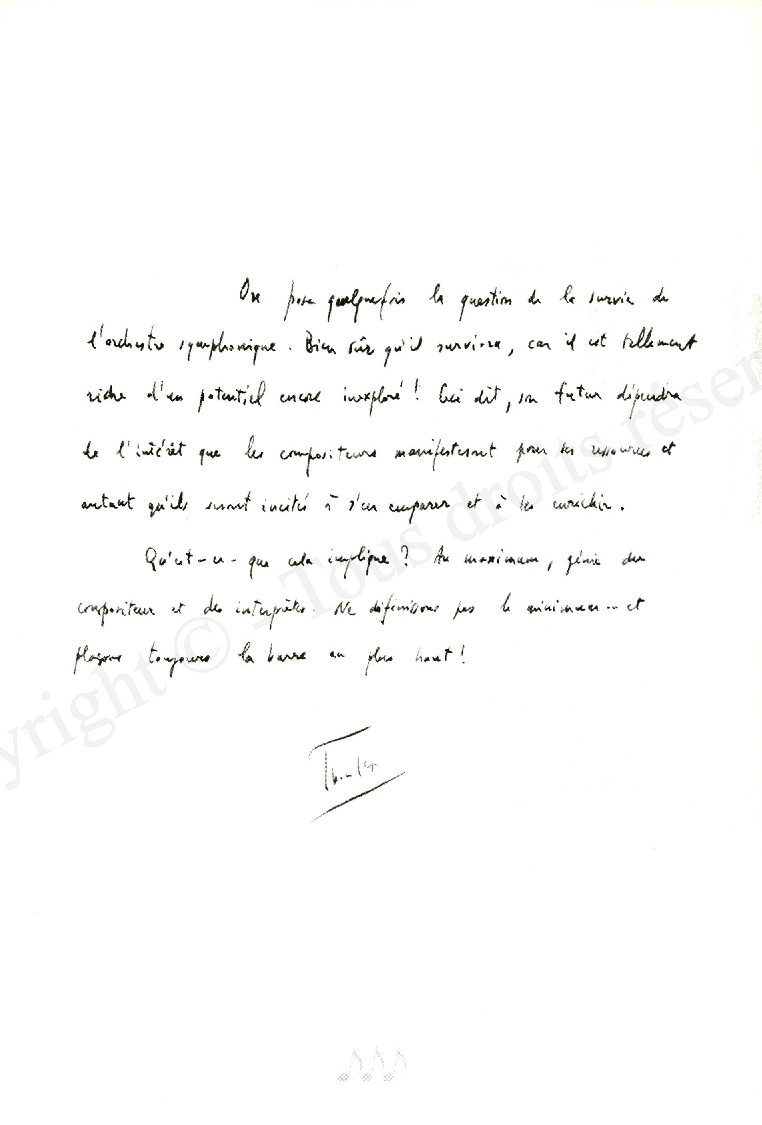 On pose quelquefois la question de la survie de
l'orchestre symphonique. Bien sûr qu'il survivra, car il est tellement
riche d'un potentiel encore inexploré ! Ceci dit, son futur dépendra
de l'intérêt que les compositeurs manifesteront pour ses ressources et
autant qu'ils seront incités à s'en emparer et à les enrichir.
Qu'est-ce-que cela implique ? Au maximum, génie du
compositeur et des interprètes. Ne définissons pas le minimum... et
plaçons toujours la barre au plus haut !
yright © - Tous droits réser